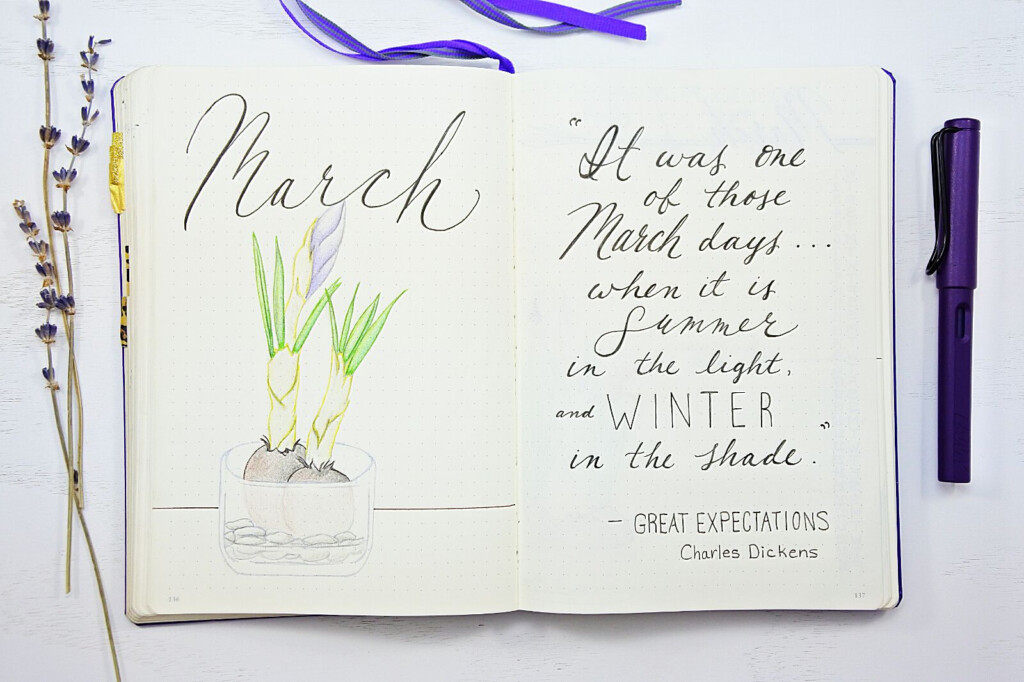 March
"It was one
of those
March days ...
when it is
Summer
in the light,
and WINTER
in the shade."
- GREAT EXPECTATIONS
Charles Dickens
136
137